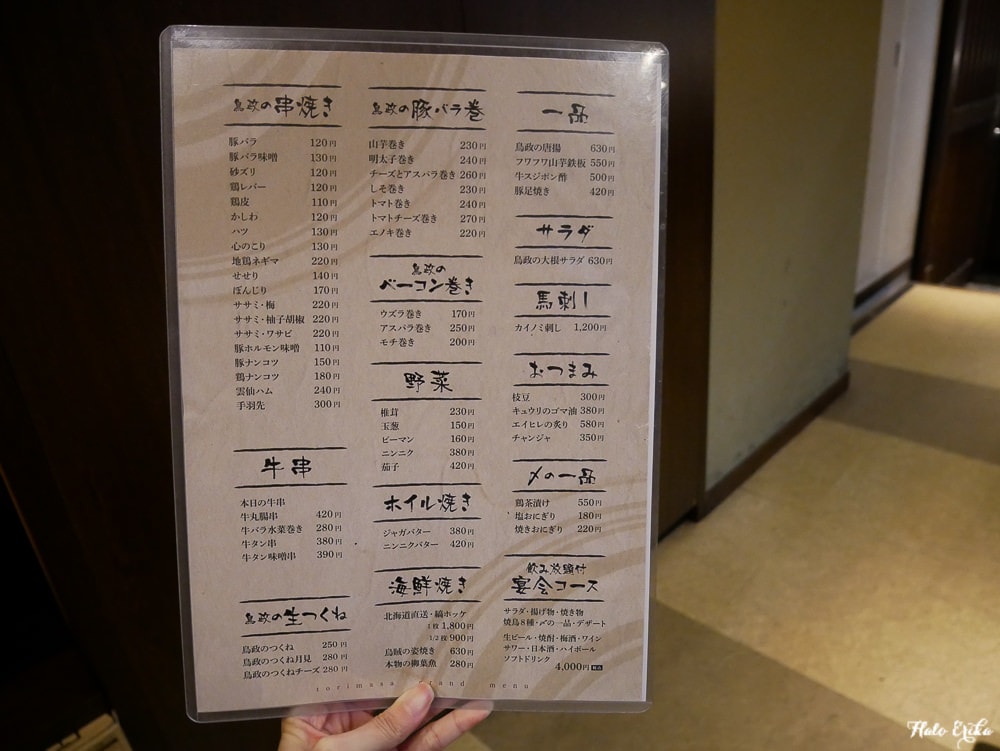 鳥政の串焼き
豚バラ 120円
豚バラ味噌 130円
砂ズリ 120円
鶏レバー 120円
鶏皮 110円
かしわ 120円
ハツ 130円
心のこり 130円
地鶏ネギマ 220円
せせり 140円
ぼんじり 170円
ササミ・梅 220円
ササミ・柚子胡椒 220円
ササミ・ワサビ 220円
豚ホルモン味噌 110円
豚ナンコツ 150円
鶏ナンコツ 180円
雲仙ハム 240円
手羽先 300円
牛串
本日の牛串
牛丸腸串 420円
牛バラ水菜巻き 280円
牛タン串 380円
牛タン味噌串 390円
鳥政の生つくね
鳥政のつくね 250円
鳥政のつくね月見 280円
鳥政のつくねチーズ 280円
鳥政の豚バラ巻
山芋巻き 230円
明太子巻き 240円
チーズとアスパラ巻き 260円
しそ巻き 230円
トマト巻き 240円
トマトチーズ巻き 270円
エノキ巻き 220円
鳥政の
ベーコン巻き
ウズラ巻き 170円
アスパラ巻き 250円
モチ巻き 200円
野菜
椎茸 230円
玉葱 150円
ピーマン 160円
ニンニク 380円
茄子 420円
ホイル焼き
ジャガバター 380円
ニンニクバター 420円
海鮮焼き
北海道直送・縞ホッケ
1枚 1,800円
1/2枚 900円
烏賊の姿焼き 630円
本物の柳葉魚 280円
一品
鳥政の唐揚 630円
フワフワ山芋鉄板 550円
牛スジポン酢 500円
豚足焼き 420円
サラダ
鳥政の大根サラダ 630円
馬刺し
カイノミ刺し 1,200円
おつまみ
枝豆 300円
キュウリのゴマ油 380円
エイヒレの炙り 580円
チャンジャ 350円
〆の一品
鶏茶漬け 550円
塩おにぎり 180円
焼きおにぎり 220円
飲み放題付
宴会コース
サラダ・揚げ物・焼き物
焼鳥8種・〆の一品・デザート
生ビール・焼酎・梅酒・ワイン
サワー・日本酒・ハイボール
ソフトドリンク
4,000円 税込
torimasa grand menu
Halo Erika